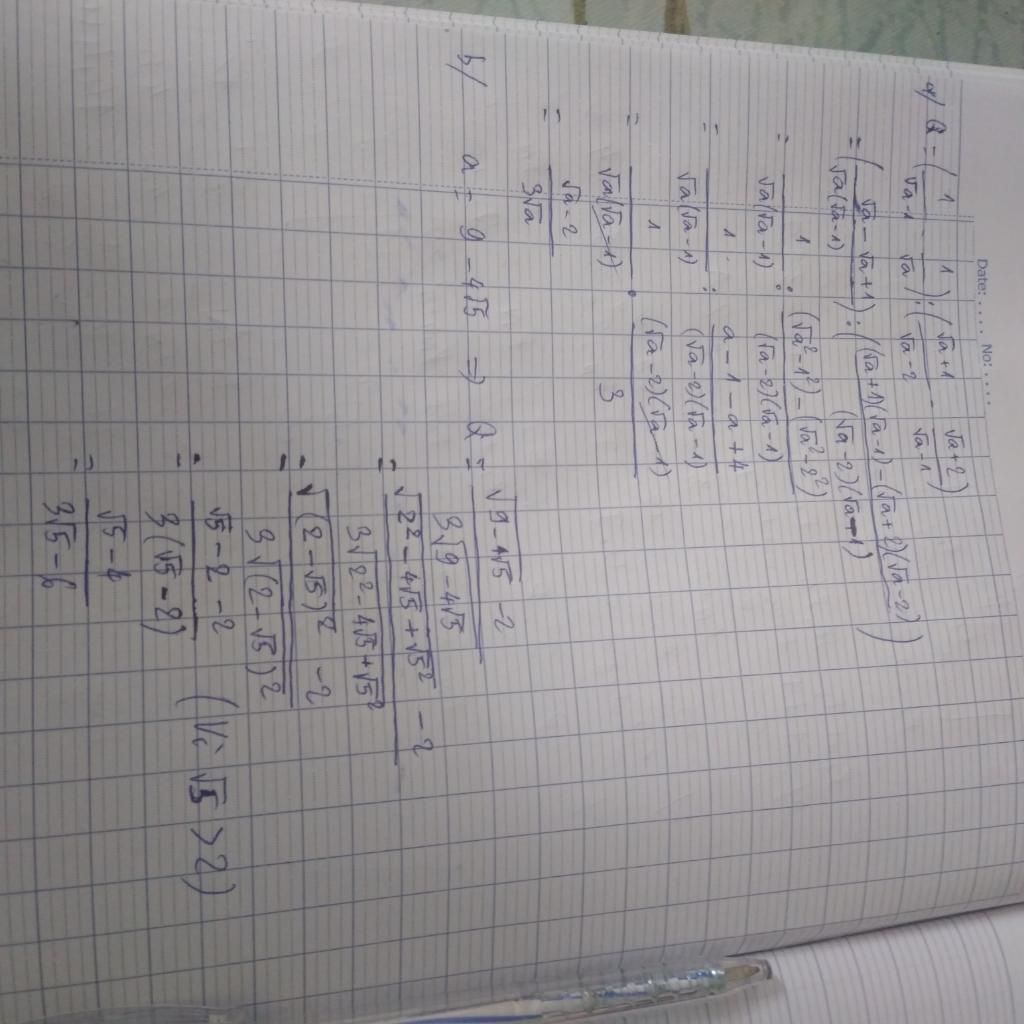 Date: .... No: ....
a/ Q = (1/(√a-1) - 1/√a) : ((√a+1)/(√a-2) - (√a+2)/(√a-1))
= ((√a - √a+1)/(√a(√a-1))) : (((√a+1)(√a-1) - (√a+2)(√a-2))/((√a-2)(√a-1)))
= 1/(√a(√a-1)) : ((√a²-1²) - (√a²-2²))/((√a-2)(√a-1))
= 1/(√a(√a-1)) : (a-1-a+4)/((√a-2)(√a-1))
= 1/(√a(√a-1)) . ((√a-2)(√a-1))/3
= (√a-2)/(3√a)
b/ a = 9 - 4√5 => Q = (√(9-4√5) - 2)/(3√(9-4√5))
= (√(2² - 4√5 + √5²) - 2)/(3√(2² - 4√5 + √5²))
= (√((2-√5)²) - 2)/(3√((2-√5)²))
= (√5 - 2 - 2)/(3(√5 - 2)) (Vì √5 > 2)
= (√5 - 4)/(3√5 - 6)